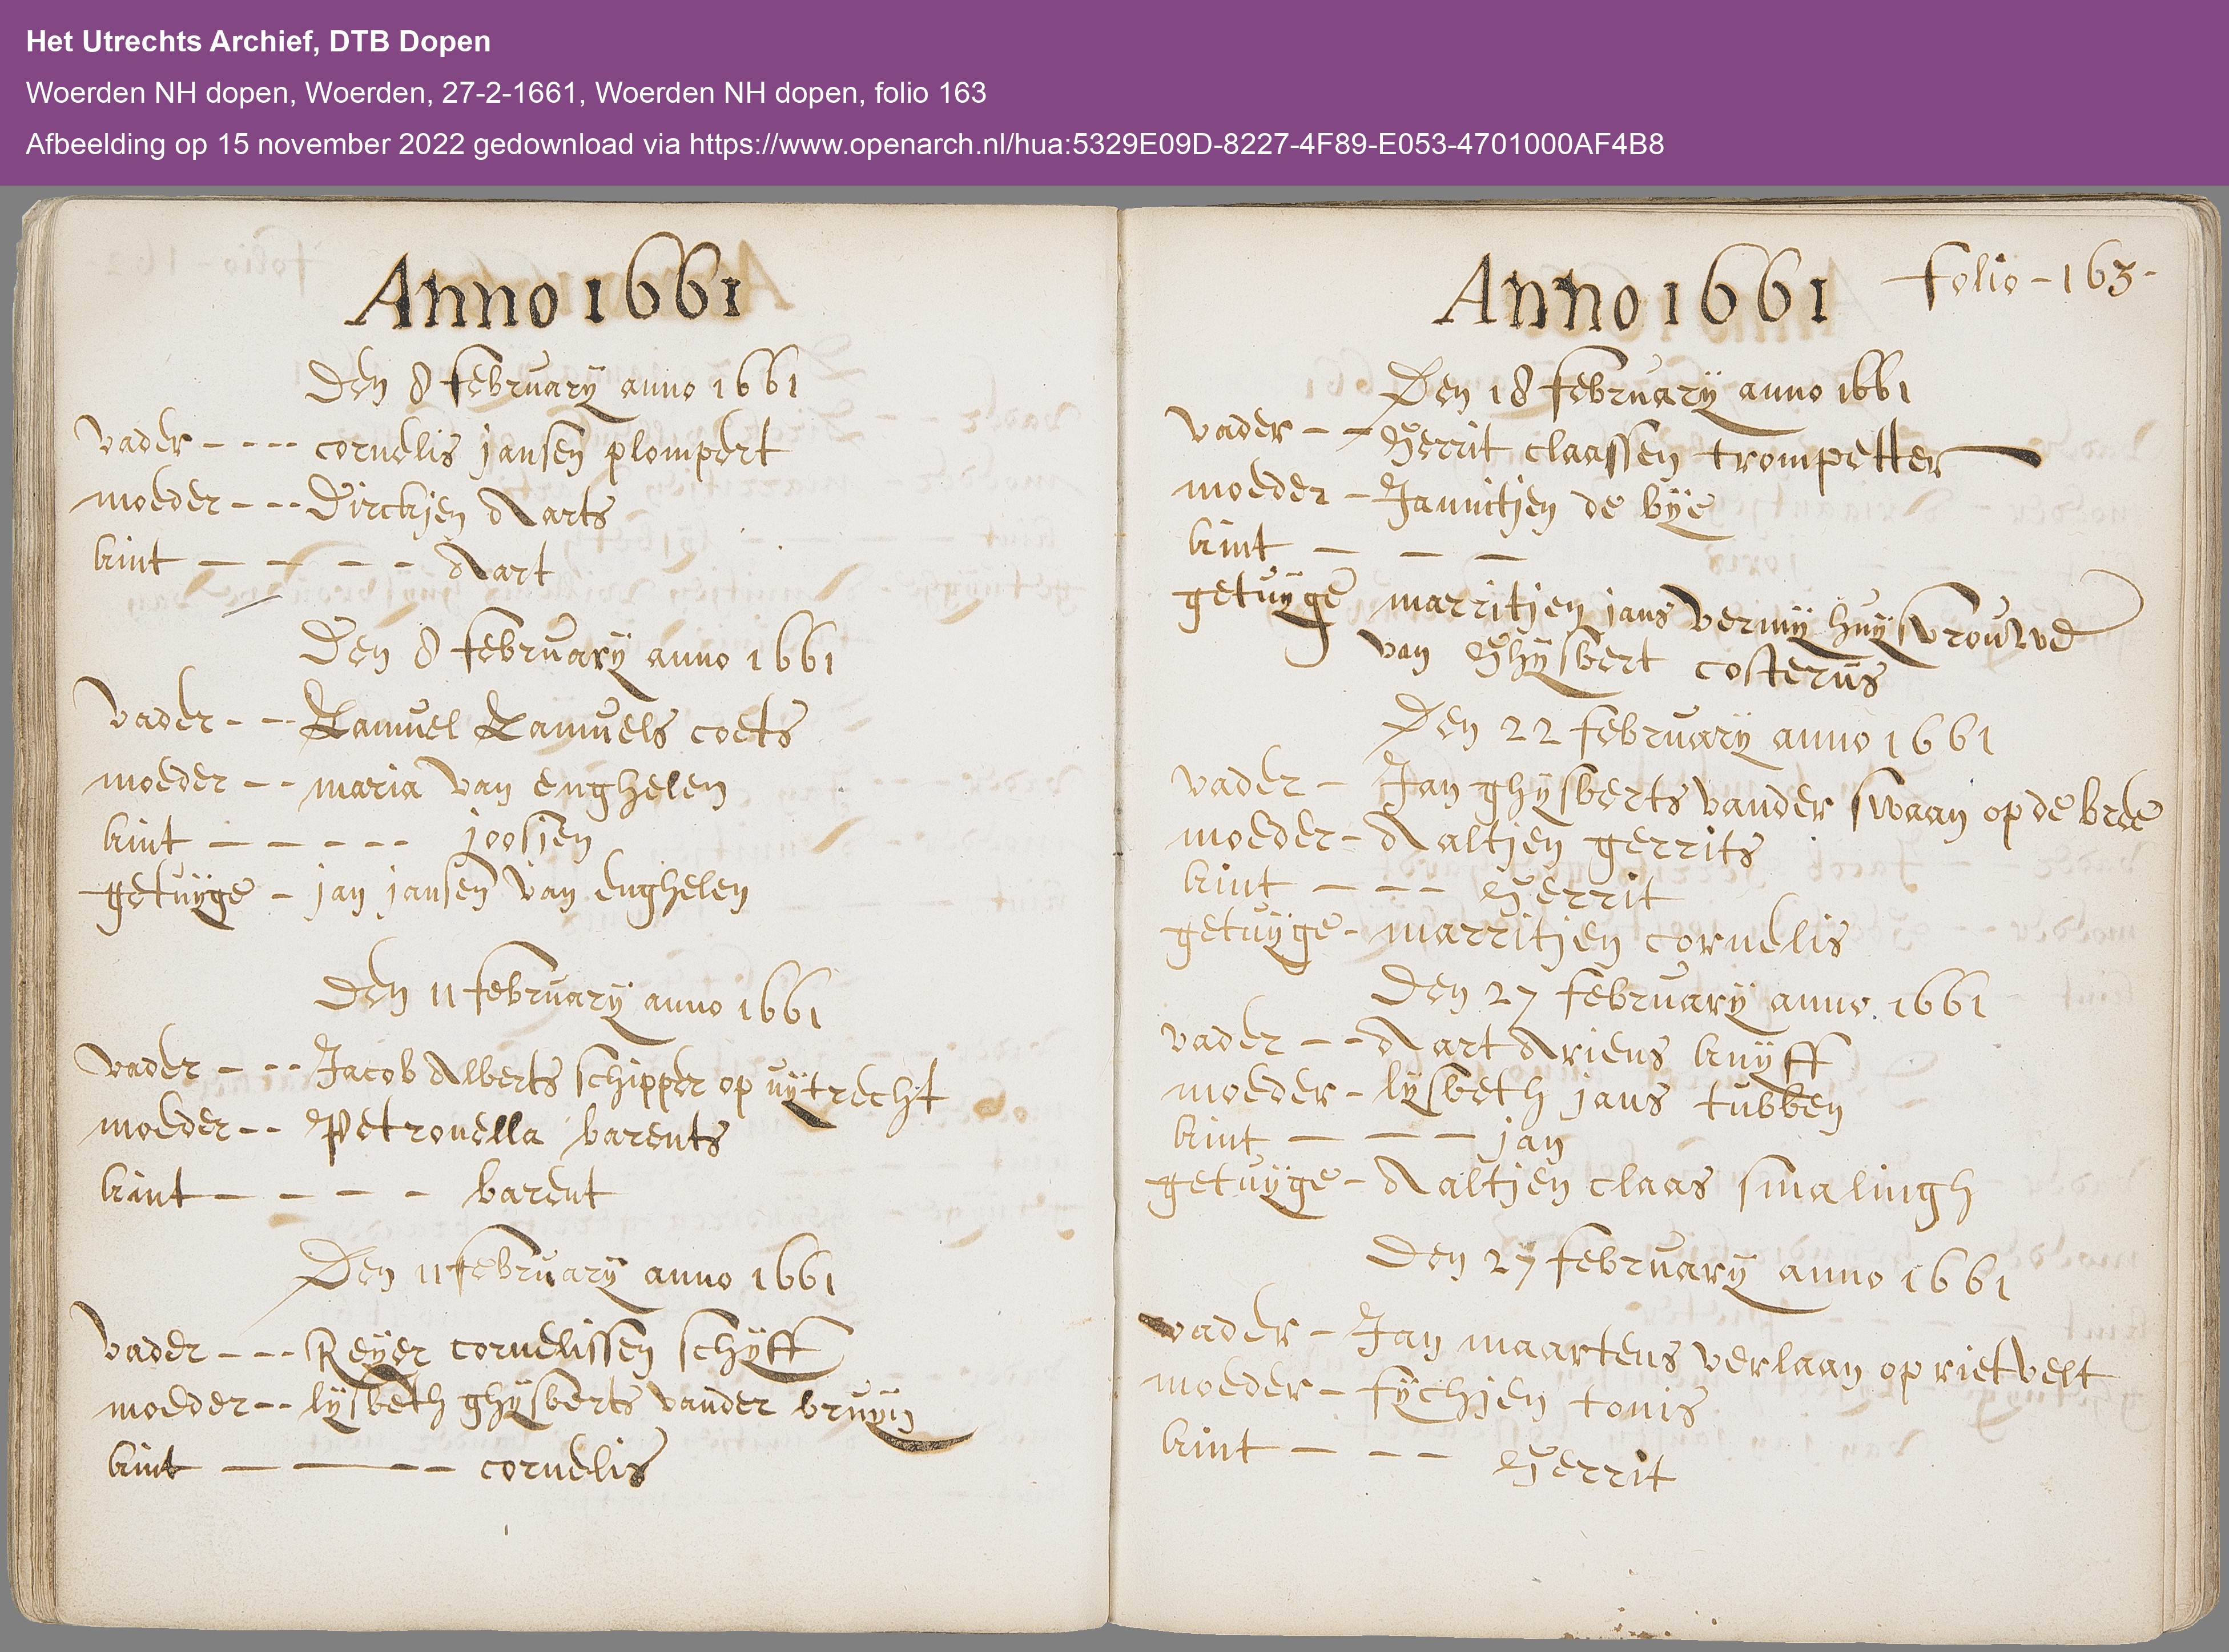 Het Utrechts Archief, DTB Dopen
Woerden NH dopen, Woerden, 27-2-1661, Woerden NH dopen, folio 163
Afbeelding op 15 november 2022 gedownload via https://www.openarch.nl/hua:5329E09D-8227-4F89-E053-4701000AF4B8
Anno 1661
Den 8 february anno 1661
vader - - - - cornelis jansen plompert
moeder - - - Dirckjen Aarts
kint - - - - Aart
Den 8 february anno 1661
vader - - Samuel Samuels coets
moeder - - maria van enghelen
kint - - - - - joosjen
getuijge - jan jansen van enghelen
Den 11 february anno 1661
vader - - - Jacob Alberts schipper op uijtrecht
moeder - - Petronella barents
kint - - - - barent
Den 11 february anno 1661
vader - - - Reijer cornelissen schijff
moeder - - lijsbeth ghijsberts vander bruijn
kint - - - cornelis
Anno 1661 folio - 163 -
Den 18 february anno 1661
vader - - Gerrit claassen trompetter
moeder - Jannitjen de bije
kint - - -
getuijge marritjen jans vermij huijsvrouwe
van Ghijsbert costerus
Den 22 february anno 1661
vader - Jan ghijsberts vander swaan op de bree
moeder - Aaltjen gerrits
kint - - - Gerrit
getuijge - marritjen cornelis
Den 27 february anno 1661
vader - - Aart Ariens knijff
moeder - lijsbeth jans tubben
kint - - - jan
getuijge - Aaltjen claas smalingh
Den 27 february anno 1661
vader - Jan maartens verlaan op rietvelt
moeder - fijchjen tonis
kint - - - Gerrit